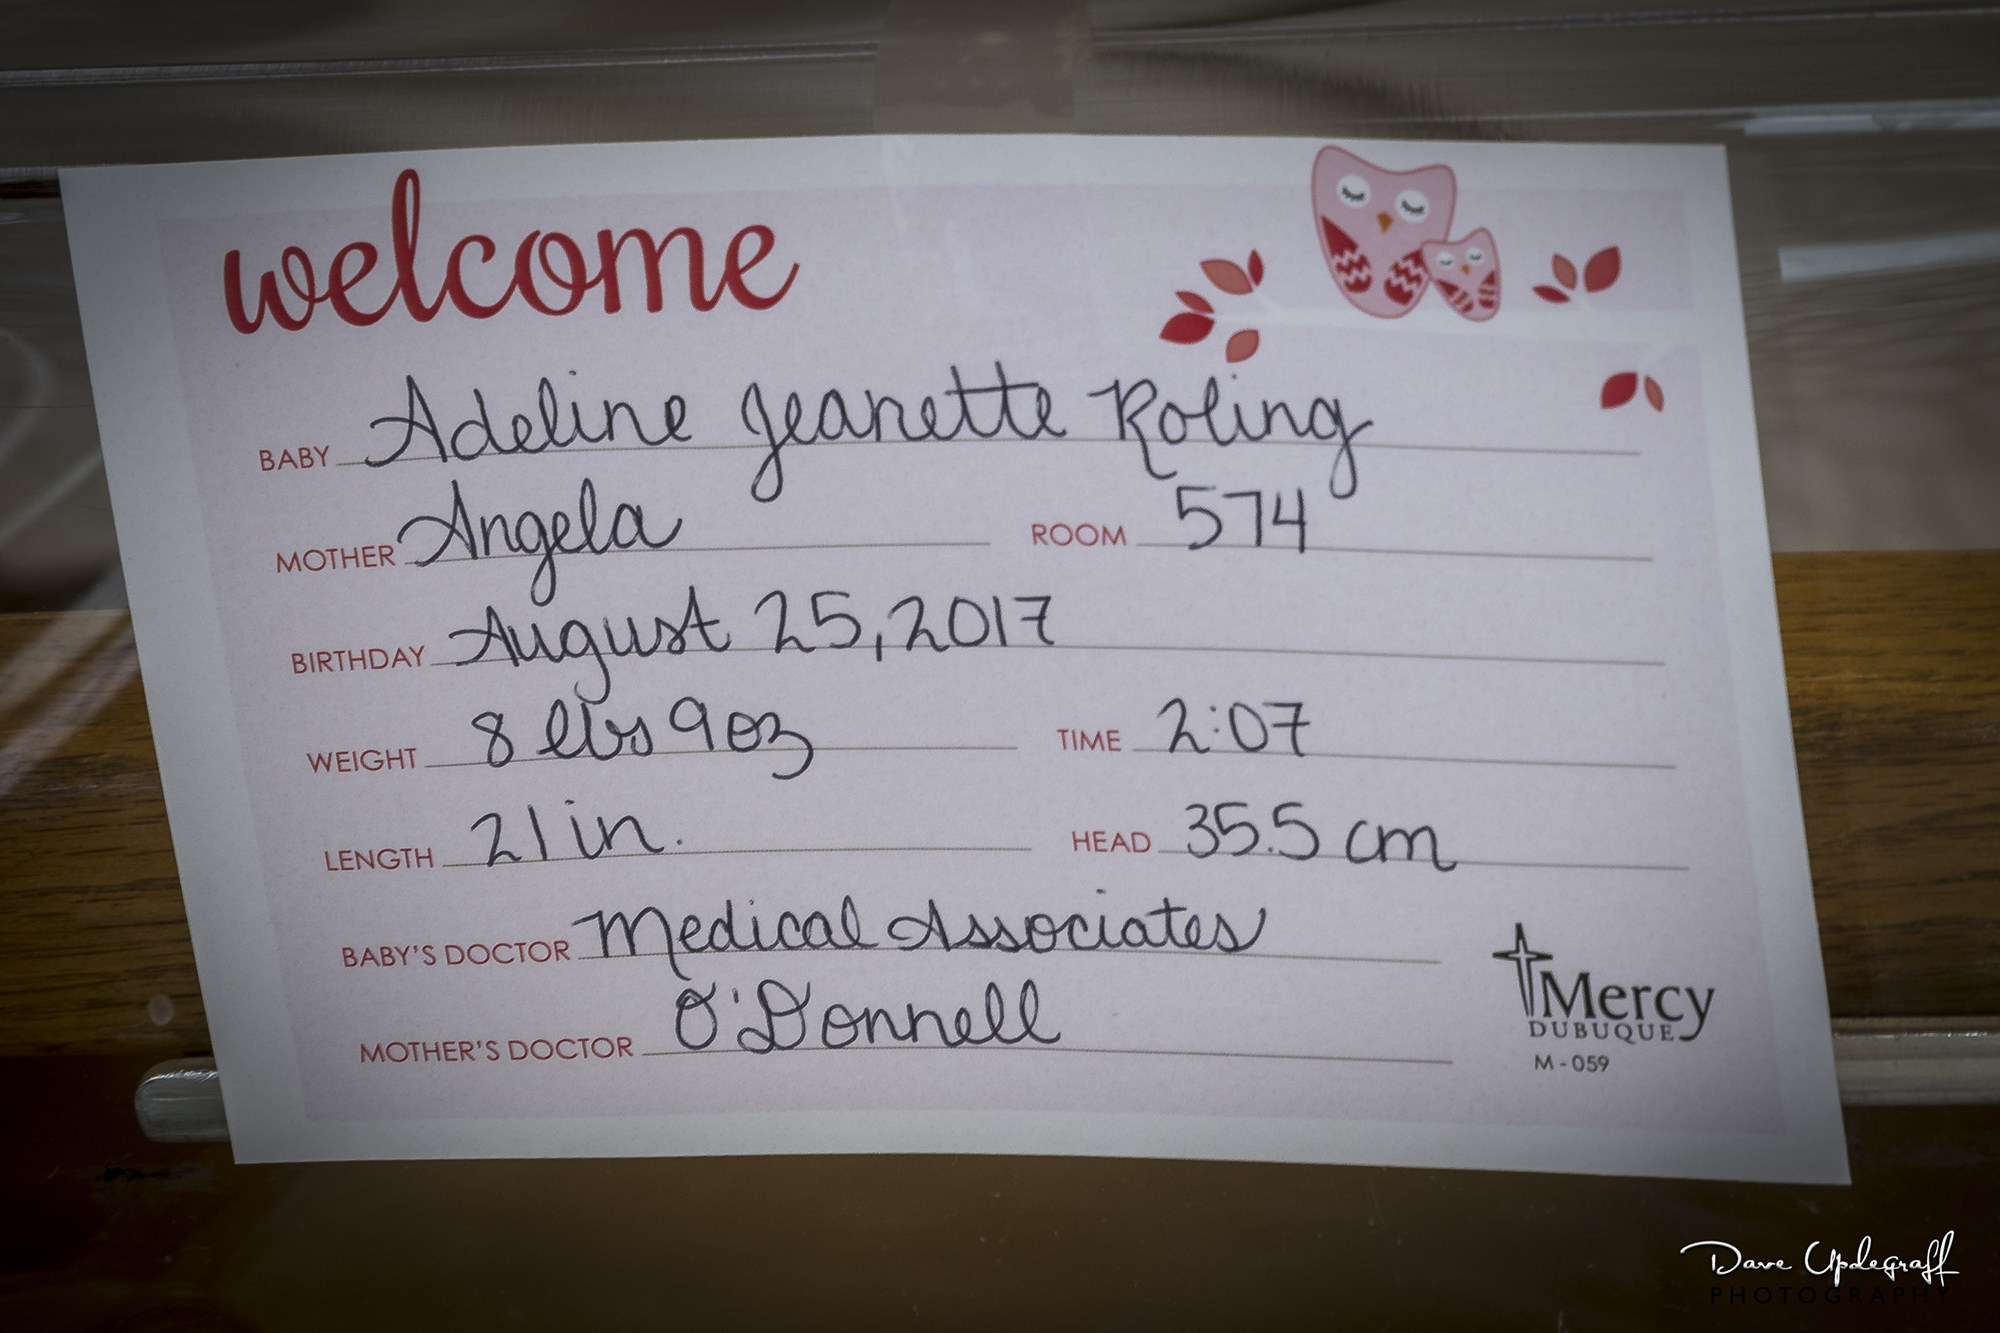 welcome
BABY Adeline Jeanette Roling
MOTHER Angela ROOM 574
BIRTHDAY August 25, 2017
WEIGHT 8 lbs 9oz TIME 2:07
LENGTH 21 in. HEAD 35.5 cm
BABY'S DOCTOR Medical Associates
MOTHER'S DOCTOR O'Donnell
Mercy
DUBUQUE
M-059
Dave Updegraff
PHOTOGRAPHY